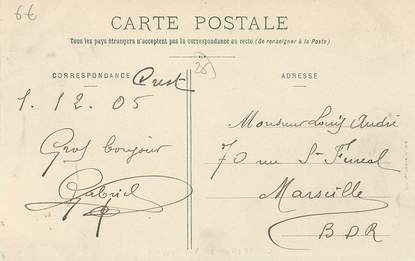 6€
CARTE POSTALE
Tous les pays étrangers n'acceptent pas la correspondance au recto (Se renseigner à la Poste)
CORRESPONDANCE
Crest
ADRESSE
1. 12. 05
Gros bonjour
Gabriel
Monsieur Louis André
70 rue St Ferreol
Marseille
B D R